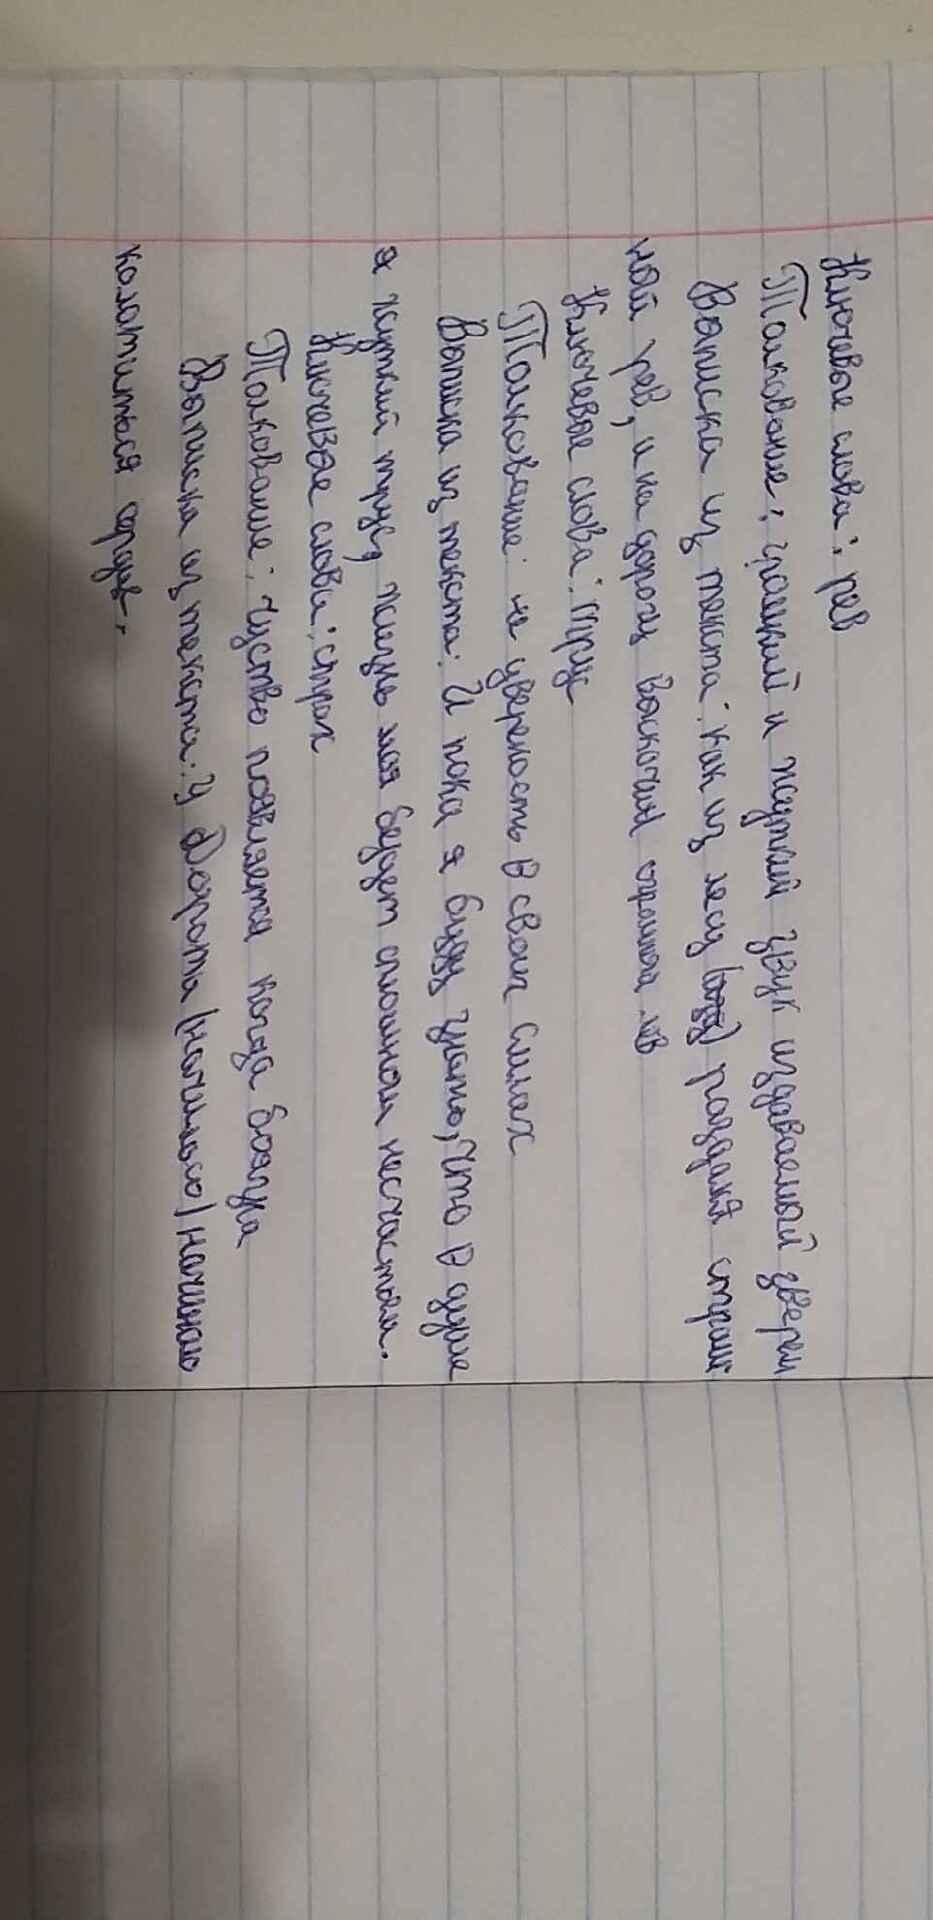 Ключевые слова: рев
Толкование: громкий и жуткий звук издаваемый зверем
Выписка из текста: как из лесу раздался страш
ной рев, и на дорогу выскочил огромной лев
Ключевые слова: трус
Толкование: не уверность в своих силах
Выписка из текста: И пока я буду знать, что в душе
я жуткий трус, жизнь моя будет сплошном несчастьем.
Ключевые слова: страх
Толкование: чуство появляется когда боязна
Выписка из текста: У Дороти (начилось) начинаю
колотиться средце.